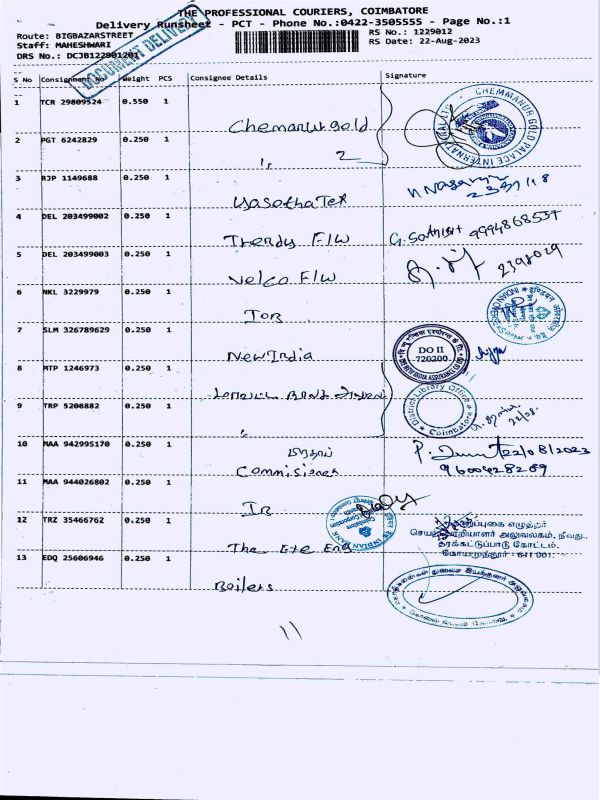 THE PROFESSIONAL COURIERS, COIMBATORE
Delivery Runsheet - PCT - Phone No.:0422-3505555 - Page No.:1
Route: BIGBAZARSTREET
RS No.: 1229012
Staff: MAHESHWARI
RS Date: 22-Aug-2023
DRS No.: DCJB122901201
DOCUMENT DELIVERY
S No Consignment No Weight PCS Consignee Details Signature
1 TCR 29809524 0.550 1 Chemanur gold
CHEMMANUR GOLD PALACE INTERNATIONAL LTD
2 PGT 6242829 0.250 1 " 2
3 RJP 1149688 0.250 1 Yasotha Tex
4 DEL 203499002 0.250 1 Trendy F/W G. Sathish 9994868537
5 DEL 203499003 0.250 1 Velco F/W 2398029
6 NKL 3229979 0.250 1 IOB
7 SLM 326789629 0.250 1 New India
DO II
720200
8 MTP 1246973 0.250 1 மாவட்ட
District Library Office
Coimbatore
9 TRP 5206882 0.250 1 "
10 MAA 942995170 0.250 1 22/08/2023
Commisioner 9600428269
11 MAA 944026802 0.250 1 IB
INDIAN BANK
12 TRZ 35466762 0.250 1 The Exe Eng
செயற்பொறியாளர் அலுவலகம், நீவது.,
தரக்கட்டுப்பாடு கோட்டம்,
கோயமுத்தூர் - 641 001.
13 EDQ 25606946 0.250 1 Boilers
11